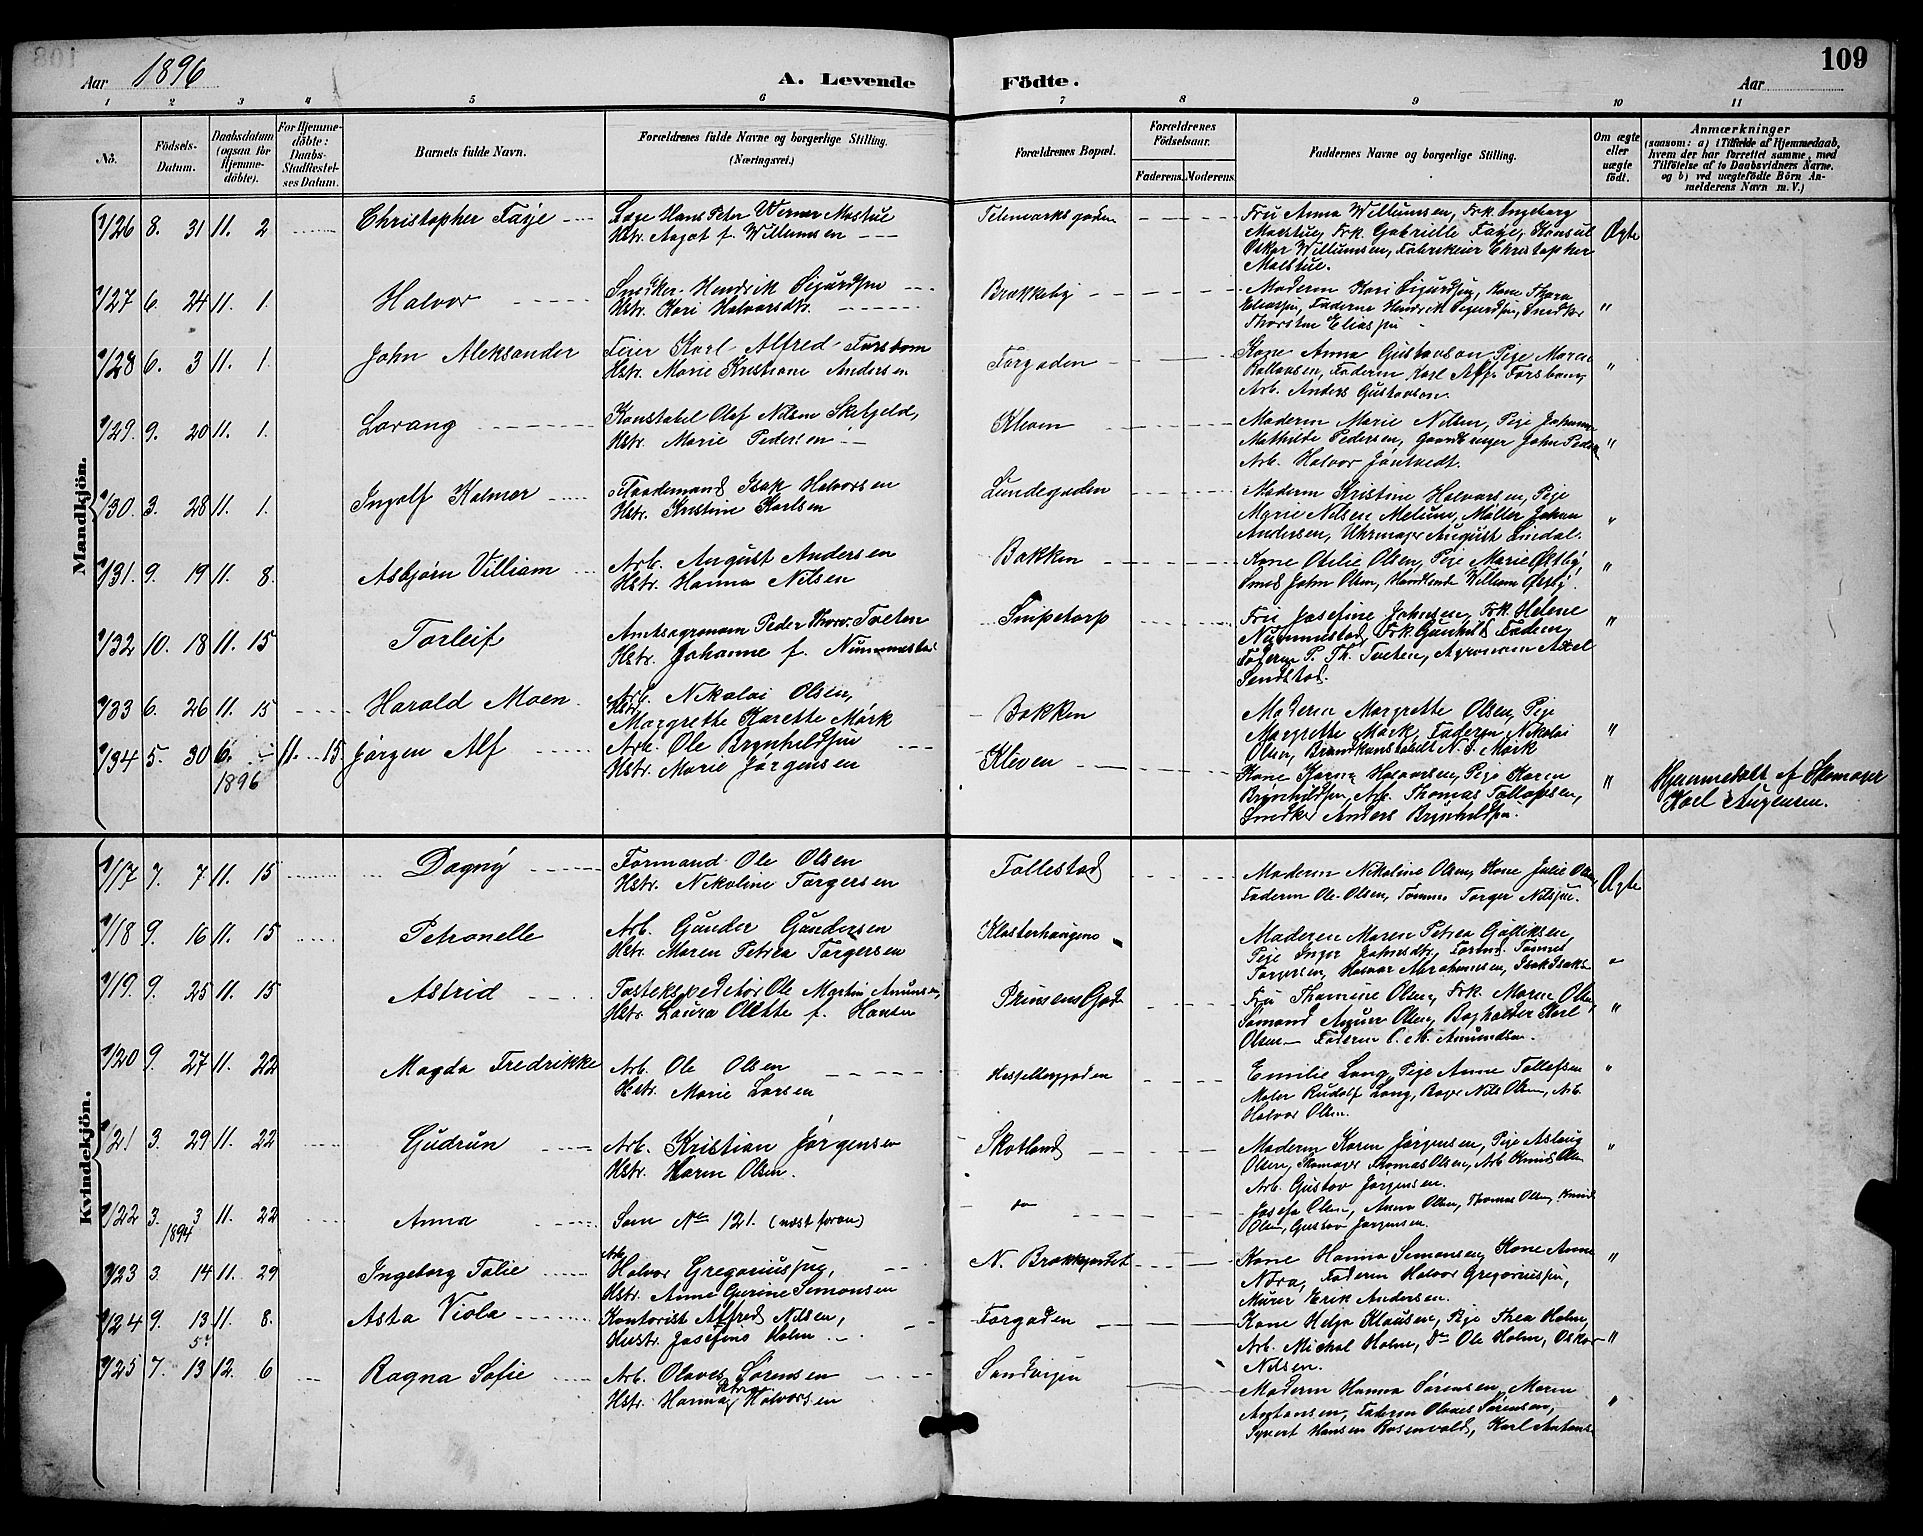 Aar 1896
A. Levende
Födte.
Aar
109
1 2 3 4 5 6 7 8 9 10 11
No.
Födsels-
Datum.
Daabsdatum
(ogsaa for
Hjemme-
döbte).
For Hjemme-
döbte:
Daabs-
Stadfæstel-
ses Datum.
Barnets fulde Navn.
Forældrenes fulde Navne og borgerlige Stilling.
(Næringsvei.)
Forældrenes Bopæl.
Forældrenes
Födselsaar.
Faderens. Moderens.
Faddernes Navne og borgerlige Stilling.
Om ægte
eller
uægte
födt.
Anmærkninger
(saasom: a) i Tilfælde af Hjemmedaab,
hvem der har forrettet samme, med
Tilföielse af to Daabsvidners Navne.
og b) ved uægtefödte Börn An-
melderens Navn m. V.)
Mandkjön.
126 8. 31 11. 2 Christopher Faye
Læge Hans Peter Werner Mostue
Hstr. Aagot f. Willumsen
Telemarksgaden
Fru Anna Willumsen, Frk. Ingeborg
Mostue, Frk. Gabrielle Faye, Konsul
Oskar Willumsen, Fabrikeier Christopher
Mostue.
Ægte
127 6. 24 11. 1. Halvor
Snedker Hendrik Sigurdsen
Hstr. Kari Halvorsdtr.
Brækkeby
Moderen Kari Sigurdsen, Kone Thora
Eliassen, Faderen Hendrik Sigurdsen, Snedker
Thorsten Eliassen
"
128 6. 3 11. 1. John Aleksander
Feier Karl Alfred Forsbom
Hstr. Marie Kristiane Andersen
Torgaden
Kone Anna Gustavson, Pige Maren
Rollavsen, Faderen Karl Alf. Forsbom,
Arb. Anders Gustavson.
"
129. 9. 20 11. 1. Lorang
Konstabel Olaf Nilsen Skifjeld,
Hstr. Marie Pedersen
Kleven
Moderen Marie Nilsen, Pige Johanne
Mathilde Pedersen, Gaardbruger John Peder
Arb. Halvor Jöntvedt.
"
130. 3. 28 11. 1. Ingolf Kalmar
Flaademand Isak Halvorsen
Hstr. Kristine Karlsen
Lundegaden
Moderen Kristine Halvorsen, Pige
Marie Nilsen Melum, Møller Johan
Andersen, Uhrmager August Lindal.
"
131. 9. 19 11. 8. Asbjørn Villiam
Arb. August Andersen
Hstr. Hanna Nilsen
Bakken
Kone Otilie Olsen, Pige Marie Østby,
Smed John Olsen, Handlende William Østby.
"
132 10. 18 11. 15 Torleif
Amtsagronom Peder Thorv. Tveten
Hstr. Johanne f. Nummestad
Snipetorp
Fru Josefine Johnsen, Frk. Helene
Nummestad, Frk. Gunhild
Faderen P. Th. Tveten, Agronom Axel
Sendstad.
"
133 6. 26 11. 15 Harald Moen
Arb. Nikolai Olsen,
Hstr. Margrethe Karette Mörk
Bakken
Moderen Margrethe Olsen, Pige
Margrethe Mörk, Faderen Nikolai
Olsen, Brandkonstabel N. S. Mörk
"
134 5. 30 6. 11. 15. Jørgen Alf
1896
Arb. Ole Brynhildsen
Hstr. Marie Jørgensen
Kleven
Kone Karen Halvorsen, Pige Karen
Brynhildsen, Arb. Thomas Tollefsen,
Snedker Anders Brynhildsen.
"
Hjemmedöbt af Skomager
Karl Jörgensen.
Kvindekjön.
117 7. 7 11. 15 Dagny
Formand Ole Olsen
Hstr. Nikoline Torgersen
Follestad
Moderen Nikoline Olsen, Kone Julie Olsen,
Faderen Ole Olsen, Tømm. Torger Nilssen.
Ægte
118 9. 16 11. 15 Petronelle
Arb. Gunder Gundersen
Hstr. Maren Petrea Torgersen
Klosterhaugene
Moderen Maren Petrea
Pige Inger Johnsdtr., Form. Tommes
Torgersen, Halvor Abrahamsen, Isak Isaks
"
119. 9. 25 11. 15 Astrid
Toldekspeditør Ole Martin Amundsen,
Hstr. Laura Olette f. Hansen
Prinsens Gade
Fru Thomine Olsen, Frk. Maren Olsen,
Sømand Olsen, Bogholder Karl
Olsen — Faderen O. M. Amundsen.
"
120 9. 27 11. 22 Magda Fredrikke
Arb. Ole Olsen
Hstr. Marie Larsen
Hesselberggaden
Emilie Lang, Pige Anne Tollefsen
Maler Rudolf Lang, Bager Nils Olsen, Arb.
Halvor Olsen.
"
121 3. 29 11. 22 Gudrun
Arb. Kristian Jørgensen
Hstr. Karen Olsen.
Skotland
Moderen Karen Jørgensen, Pige Aslaug
Olsen, Skomager Thomas Olsen, Arb. Knud Olsen
Arb. Gustav Jørgensen.
"
122 3. 3 11. 22 Anna
1894
Som No 121. (næst foran)
do
Josefa Olsen, Anna Olsen, Thomas Olsen, Knud
Olsen, Gustav Jørgensen.
123 3. 14 11. 29 Ingeborg Tolie
Arb. Halvor Gregoriussen,
Hstr. Anne Gurine Simonsen
N. Brækkejordet
Kone Hanna Simonsen, Kone Anne
Nöra, Faderen Halvor Gregoriussen,
Murer Erik Andersen.
"
124 9. 13 11. 8. Asta Viola
Kontorist Alfred Nilsen,
Hustr. Josefine Holm
Torgaden
Kone Helga Klausen, Pige Thea Holm,
Arb. Michal Holm, Do Ole Holm, Oskar
Nilsen.
"
125 7. 13 12. 6 Ragna Sofie
Arb. Olaves Sørensen
Hstr. Hanna Halvorsen
Sandvigen
Moderen Hanna Sørensen, Maren
Antonsen, Faderen Olaves Sørensen,
Syvert Hansen Rosenvold, Karl Antons
"